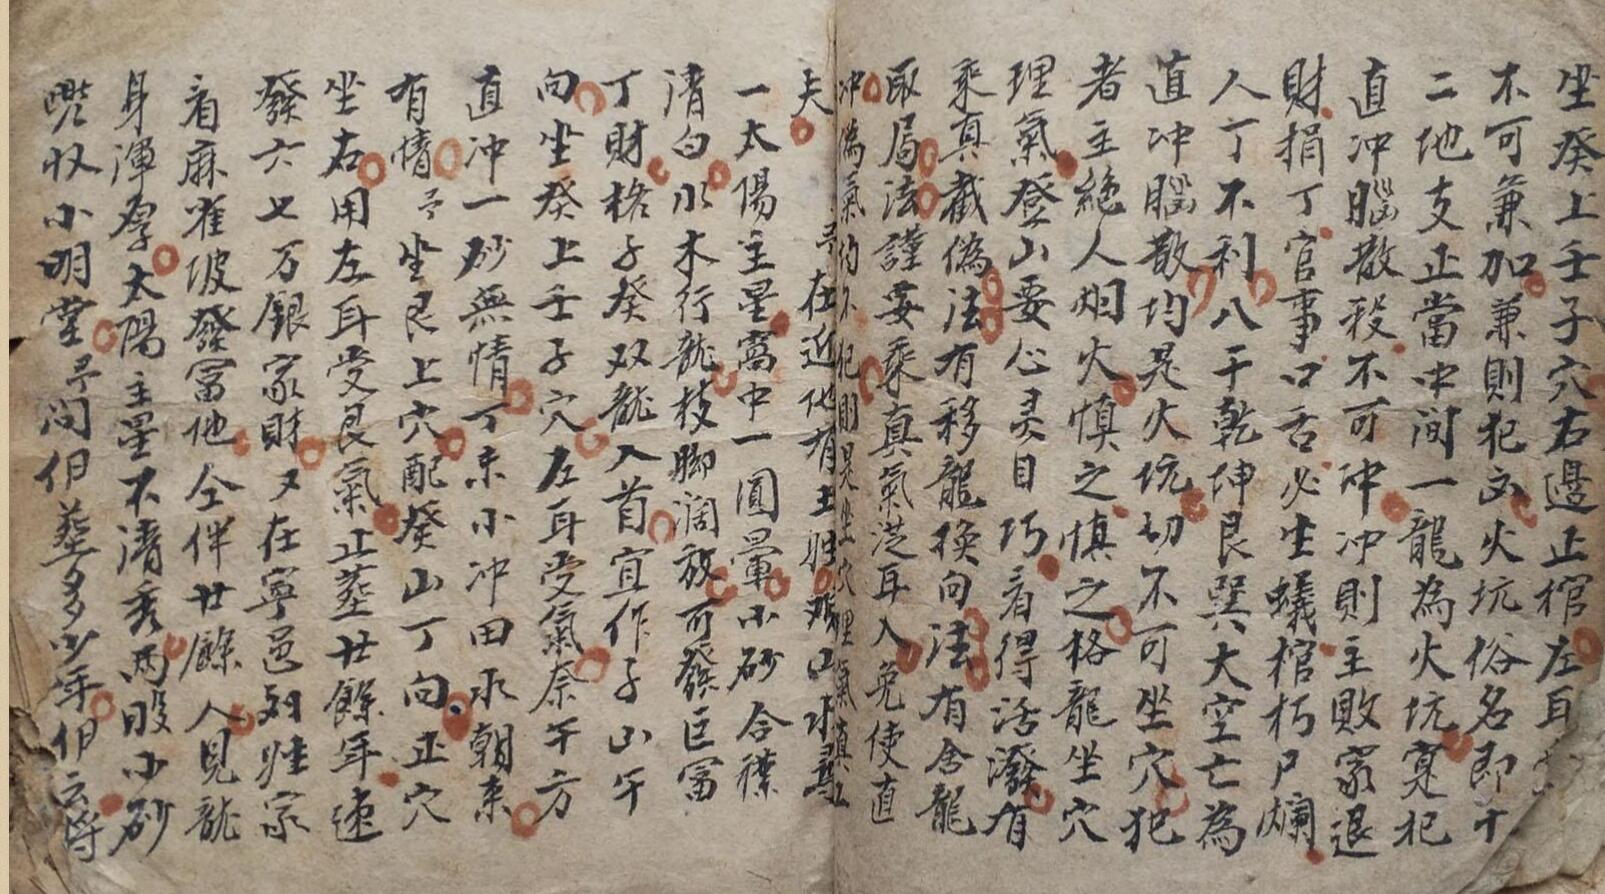 坐癸上壬子穴右邉正棺左耳
不可兼加兼則犯文火坑俗名即十
二地支正當中间一龍為火坑寔犯
直冲腦散殺不可冲冲則主敗家退
財捐丁官事口舌必生蟻棺朽尸爛
人丁不利八干乾坤艮巽大空亡為
直冲腦散均是火坑切不可坐穴犯
者主絶人烟火慎之慎之格龍坐穴
理氣登山要心灵目巧看得活潑有
乘真截偽法有移龍换向法有舍龍
取局法謹妾乘真氣従耳入免使直
冲偽氣的不犯則是坐穴理氣真
夫 予在近地有土山水
一太陽主星窩中一圓暈小砂合襟
清白水木行龍枝脚濶放可發巨富
丁財格子癸双龍入首宜作子山午
向坐癸上壬子穴左耳受氣奈午方
直冲一砂無情丁未小冲田水朝来
有情予坐艮上穴配癸山丁向正穴
坐右用左耳受艮氣正塟廿餘年速
發六七万銀家財又在寧邑刘姓家
看麻雀坡發冨他仝伴廿餘人見龍
身渾厚太陽主星不清秀两股小砂
收小明堂予问佀塟多少年佀云将